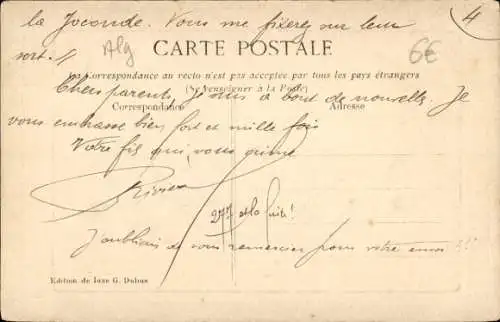 la Joconde. Vous me fixerez sur leur
sort.
Alg
4
CARTE POSTALE
6€
La Correspondance au recto n'est pas acceptée par tous les pays étrangers
(Se renseigner à la Poste)
Chers parents, je suis à bout de nouvelles. Je
Correspondance
Adresse
vous embrasse bien fort et mille fois
Votre fils qui vous aime
Rivière
et la suite!
J'oubliais de vous remercier pour votre envoi !!!
Edition de luxe G. Dubois